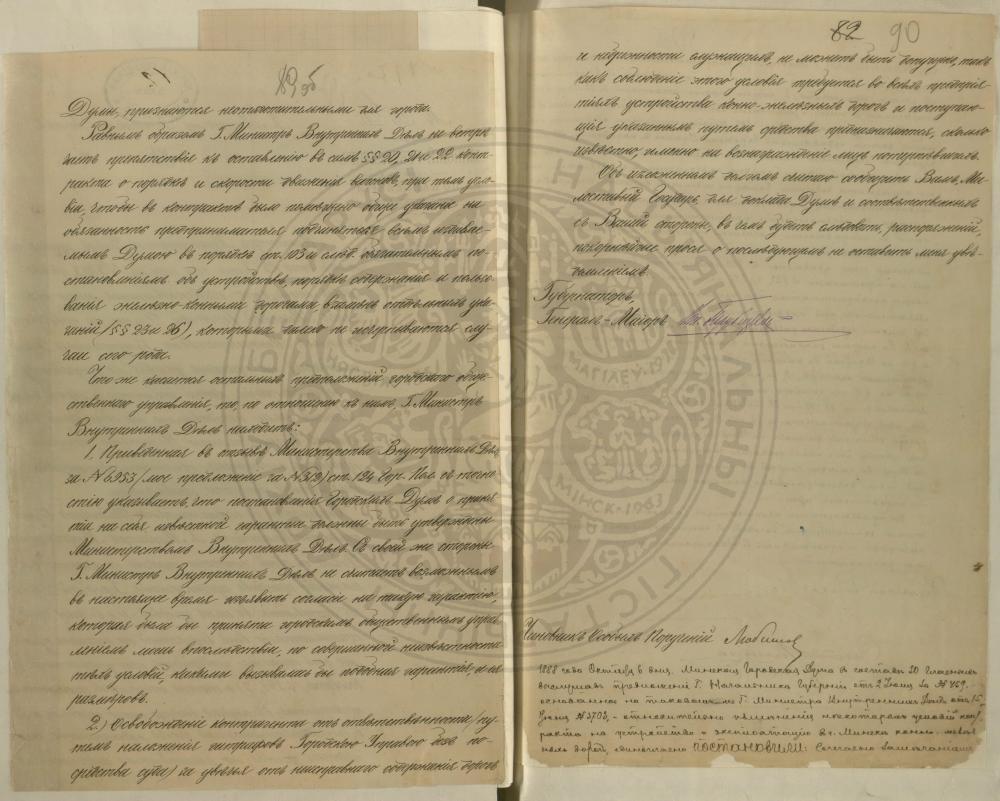 89 об
Думы, признаются неотяготительными для города.
Равнымъ образомъ Г. Министръ Внутреннихъ Дѣлъ не встрѣ
чаетъ препятствія къ оставленію въ силѣ §§ 20, 21 и 22 конт
ракта о порядкѣ и скорости движенія вагоновъ, при томъ усло
віи, чтобы въ контрактѣ было помѣщено общее указаніе на
обязанность предпринимателя подчиняться всѣмъ издавае
мымъ Думою въ порядкѣ ст. 103 и слѣд. обязательнымъ по
становленіямъ объ устройствѣ, порядкѣ содержанія и пользо
ванія желѣзно-конными дорогами, взамѣнъ отдѣльныхъ ука
заній (§§ 23 и 26), которыми далеко не исчерпываются слу
чаи сего рода.
Что же касается остальныхъ предположеній городского обще
ственнаго управленія, то, по отношенію къ нимъ, Г. Министръ
Внутреннихъ Дѣлъ находитъ:
1. Приведенная въ отзывѣ Министерства Внутреннихъ Дѣлъ
за № 6953 (мое предложеніе за № 512) ст. 124 Гор. Пол. съ точно
стію указываетъ, что постановленія Городскихъ Думъ о приня
тіи на себя извѣстной гарантіи должны быть утверждены
Министерствомъ Внутреннихъ Дѣлъ. Съ своей же стороны
Г. Министръ Внутреннихъ Дѣлъ не считаетъ возможнымъ
въ настоящее время изъявить согласіе на такую гарантію,
которая была бы принята городскимъ общественнымъ упра
вленіемъ лишь впослѣдствіи, по совершенной неизвѣстности
тѣхъ условій, какими вызвалась бы подобная гарантія, и ея
размѣровъ.
2.) Освобожденіе контрагента отъ отвѣтственности (пу
темъ наложенія штрафовъ Городскою Управою безъ по
средства суда) за увѣчья отъ неисправнаго содержанія дорогъ
82 90
и небрежности служащихъ, не можетъ быть допущено, такъ
какъ соблюденіе этого условія требуется во всѣхъ предпрія
тіяхъ устройства конно-желѣзныхъ дорогъ и поступаю
щія указаннымъ путемъ средства предназначаются, сколько
извѣстно, именно на вознагражденіе лицъ потерпѣвшихъ.
Объ изложенномъ долгомъ считаю сообщить Вамъ, Ми
лостивый Государь, для доклада Думѣ и соотвѣтственныхъ
съ Вашей стороны, въ чемъ будетъ слѣдовать, распоряженій,
покорнѣйше прося о послѣдующемъ не оставить меня увѣ
домленіемъ.
Губернаторъ,
Генералъ-Маіоръ
Чиновникъ Особыхъ Порученій
1888 года Октября 6 дня. Минская Городская Дума въ составѣ 30 гласныхъ
выслушавъ предложеніе Г. Начальника Губерніи отъ 2 Іюля за № 759.
основанное на таковомъ же Г. Министра Внутреннихъ Дѣлъ отъ 15
Іюня № 3703,- относительно измѣненія нѣкоторыхъ условій кон
ракта на устройство и эксплоатацію въ г. Минскѣ конно-желѣз
ныхъ дорогъ, единогласно ПОСТАНОВИЛИ: Согласно
МАГІЛЕЎ
МІНСК-1963